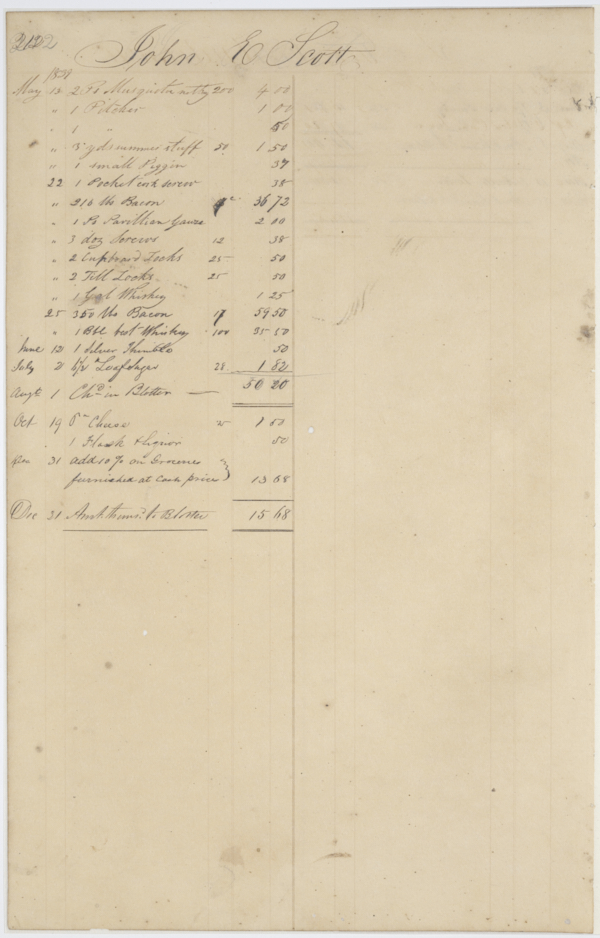 John E Scott
May 18 2 Ps Musquito netty 200 4 00
" 1 Pitcher 1 00
" 1 " 50
" 3 yds summer stuff 50 1 50
" 1 small Piggin 37
22 1 Pocket cork screw 38
" 216 lbs Bacon 36 72
" 1 Ps Pavillian Gauze 2 00
" 3 doz Screws 12 38
" 2 Cupboard Locks 25 50
" 2 Till Locks 25 50
" 1 Gal Whiskey 1 25
25 350 lbs Bacon 17 59 50
" 1 Bbl best Whiskey 100 35 50
June 12 1 Silver Thimble 50
July 21 6½ " Loaf Sugar 28 1 82
Augt 1 Chd in Blotter 50 20
Oct 19 6 " Cheese 25 1 50
" 1 Flask & Liquor 50
Dec 31 add 10 % on Groceries
furnished at Cash prices } 13 68
Dec 31 Amt. to Blotter 15 68